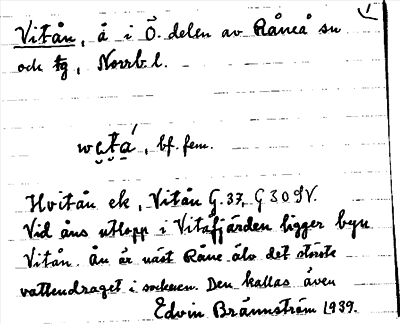 1
Vitån, å i Ö. delen av Råneå sn
och tg, Norrb. l.
bf. fem.
Hvitån ek, Vitån G. 37, G 30 SV.
Vid åns utlopp i Vitåfjärden ligger byn
Vitån. Ån är näst Råne älv det största
vattendraget i socknen. Den kallas även
Edvin Brännström 1939.